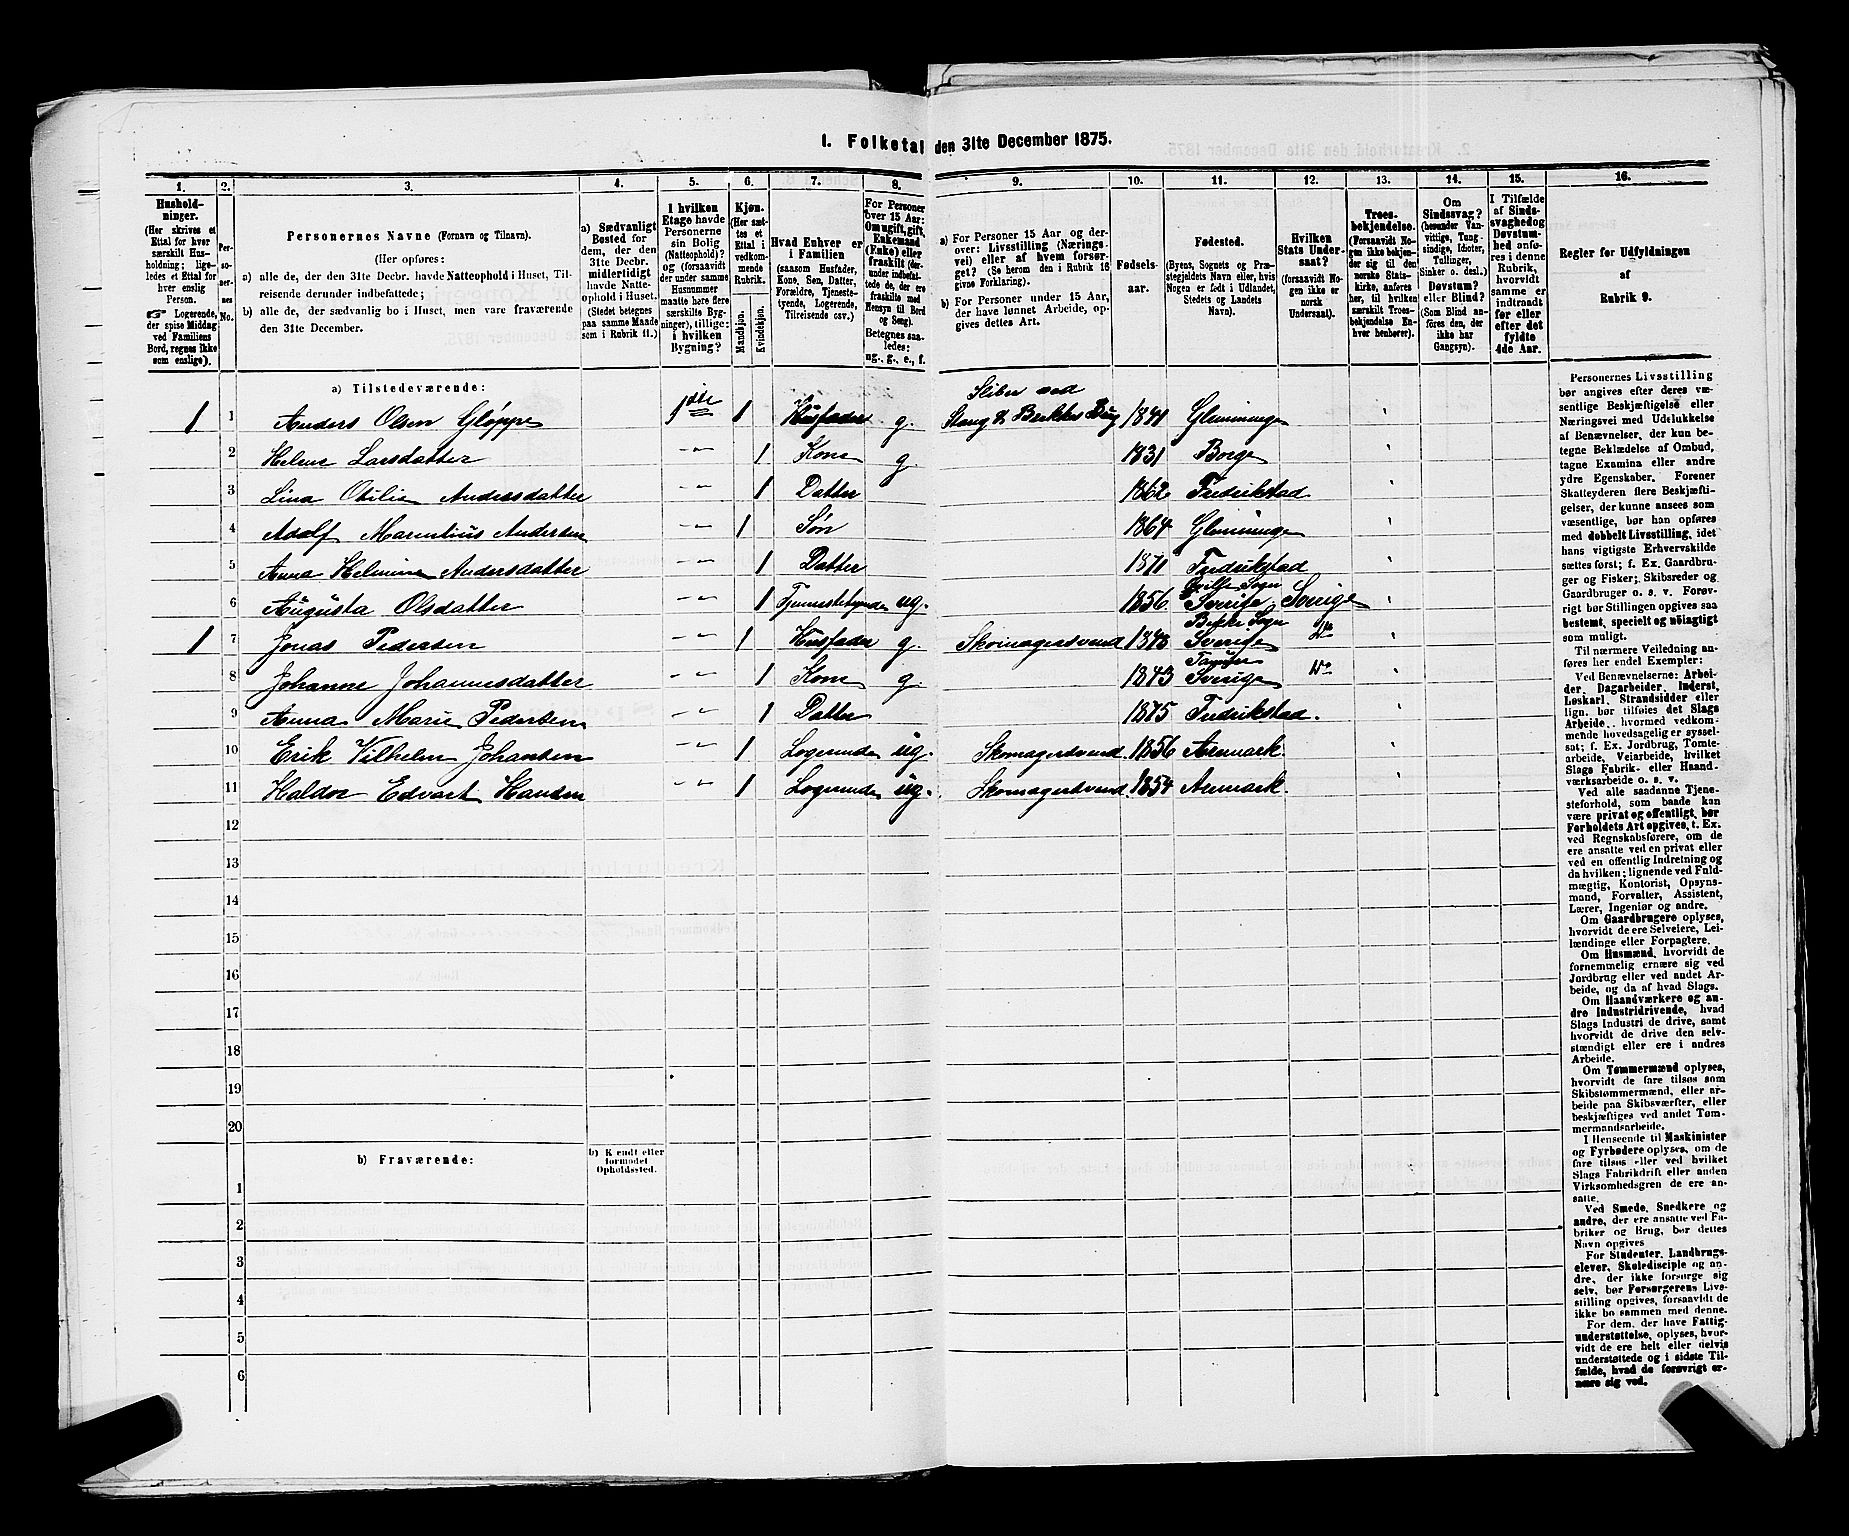 1. Folketal den 31te December 1875.
1. 2. 3. 4. 5. 6. 7. 8. 9. 10. 11. 12. 13. 14. 15. 16.
Hushold-
ninger.
(Her skrives et
Ettal for hver
særskilt Hus-
holdning; lige-
ledes et Ettal for
hver enslig
Person.
☞ Logerende,
der spise Middag
ved Familiens
Bord, regnes ikke
som enslige).
Per-
so-
ner-
nes
No.
Personernes Navne (Fornavn og Tilnavn).
(Her opføres:
a) alle de, der den 31te Decbr. havde Natteophold i Huset, Til-
reisende derunder indbefattede;
b) alle de, der sædvanlig bo i Huset, men vare fraværende
den 31te December.
a) Sædvanligt
Bosted for
dem, der den
31te Decbr.
midlertidigt
havde Natte-
ophold i Huset.
(Stedet betegnes
paa samme Maade
som i Rubrik 11.)
I hvilken
Etage havde
Personerne
sin Bolig
(Natteophold)?
og (forsaavidt
der under samme
Husnummer
maatte høre flere
særskilte Byg-
ninger), tillige:
i hvilken
Bygning?
Kjøn.
(Her sæt-
tes et
Ettal i
vedkom-
mende
Rubrik.
Mandkjøn.
Kvindekjøn.
Hvad Enhver er
i Familien
(saasom Husfader,
Kone, Søn, Datter,
Forældre, Tjeneste-
tyende, Logerende,
Tilreisende osv.)
For Personer
over 15 Aar:
Om ugift, gift,
Enkemand
(Enke) eller
fraskilt (der-
under indbefat-
tede de, der ere
fraskilte med
Hensyn til Bord
og Seng).
Betegnes saa-
ledes:
ug., g., e., f.
a) For Personer 15 Aar og der-
over: Livsstilling (Nærings-
vei) eller af hvem forsør-
get? (Se herom den i Rubrik 16
givne Forklaring).
b) For Personer under 15 Aar,
der have lønnet Arbeide, op-
gives dettes Art.
Fødsels-
aar.
Fødested.
(Byens, Sognets og Præ-
stegjeldets Navn eller, hvis
Nogen er født i Udlandet,
Stedets og Landets
Navn).
Hvilken
Stats Under-
saat?
(forsaavidt No-
gen ikke er
norsk
Undersaat).
Troes-
bekjendelse.
(Forsaavidt No-
gen ikke bekjen-
der sig til den
norske Stats-
kirke, anføres
her, til hvilken
særskilt Troes-
bekjendelse En-
hver henhører).
Om
Sindssvag?
(herunder Van-
vittige, Tung-
sindige, Idioter,
Tullinger,
Sinker o. desl.)
Døvstum?
eller Blind?
(Som Blind an-
føres den, der
ikke har
Gangsyn).
I Tilfælde
af Sinds-
svaghed og
Døvstum-
hed anfø-
res i denne
Rubrik,
hvorvidt
samme er
indtraadt
før eller
efter det
fyldte
4de Aar.
Regler for Udfyldningen
af
Rubrik 9.
a) Tilstedeværende:
1 1 Anders Olsen Gløppe 1ste 1 Husfader g. Sliber ved Stang & Bredes Brug 1841 Glemminge
2 Helene Larsdatter -"- 1 Kone g. 1831 Borge
3 Lina Otilie Andersdatter -"- 1 Datter 1862 Fredrikstad
4 Adolf Marentius Andersen -"- 1 Søn 1864 Glemminge
5 Anna Helmine Andersdatter -"- 1 Datter 1871 Fredrikstad
6 Augusta Olsdatter -"- 1 Tjenestetyende ug. 1856 Sogn Sverige Sverige
1 7 Jonas Pedersen -"- 1 Husfader g. Skomagersvend 1848 Sogn Sverige Do
8 Johanne Johannesdatter -"- 1 Kone g. 1843 Sverige Do
9 Anna Marie Pedersen -"- 1 Datter 1875 Fredrikstad.
10 Erik Vilhelm Johansen -"- 1 Logerende ug. Skomagersvend 1856 Aremark.
11 Haldor Edvart Hansen -"- 1 Logerende ug. Skomagersvend 1854 Aremark.
12
13
14
15
16
17
18
19
20
b) Fraværende:
b) Kjendt eller
formodet
Opholdssted.
1
2
3
4
5
6
Personernes Livsstilling
bør angives efter deres væ-
sentlige Beskjæftigelse eller
Næringsvei med Udelukkelse
af Benævnelser, der kun be-
tegne Beklædelse af Ombud,
tagne Examina eller andre
ydre Egenskaber. Forener
Skatteyderen flere Beskjæfti-
gelser, der kunne ansees som
væsentlige, bør han opføres
med dobbelt Livsstilling, idet
hans vigtigste Erhvervskilde
sættes først; f. Ex. Gaardbru-
ger og Fisker; Skibsreder og
Gaardbruger o. s. v. Forøv-
rigt bør Stillingen opgives saa
bestemt, specielt og nøiagtigt
som muligt.
Til nærmere Veiledning an-
føres her endel Exempler:
Ved Benævnelserne: Arbei-
der, Dagarbeider, Inderst,
Løskarl, Strandsidder eller
lign. bør tilføies det Slags
Arbeide, hvormed vedkom-
mende hovedsagelig er syssel-
sat; f. Ex. Jordbrug, Tomte-
arbeide, Veiarbeide, hvilket
Slags Fabrik- eller Haand-
værksarbeide o. s. v.
Ved alle saadanne Tjene-
steforhold, som baade kan
være privat og offentligt, bør
Forholdets Art opgives, t. Ex.
ved Regnskabsførere, om de
ere ansatte ved en privat eller
ved en offentlig Indretning og
da hvilken; lignende ved Fuld-
mægtig, Kontorist, Opsyns-
mand, Forvalter, Assistent,
Lærer, Ingeniør og andre.
Om Gaardbrugere oplyses,
hvorvidt de ere Selveiere, Lei-
lændinge eller Forpagtere.
Om Husmænd, hvorvidt de
fornemmelig ernære sig ved
Jordbrug eller ved andet Ar-
beide, og da af hvad Slags.
Om Haandværkere og an-
dre Industridrivende, hvad
Slags Industri de drive, samt
hvorvidt de drive den selv-
stændigt eller ere i andres
Arbeide.
Om Tømmermænd oplyses,
hvorvidt de fare tilsøs som
Skibstømmermænd, eller ar-
beide paa Skibsværfter, eller
beskjæftiges ved andet Tøm-
mermandsarbeide.
I Henseende til Maskinister
og Fyrbødere oplyses, om de
fare tilsøs eller ved hvilket
Slags Fabrikdrift eller anden
Virksomhedsgren de ere an-
satte.
Ved Smede, Snedkere og
andre, der ere ansatte ved Fa-
briker og Brug, bør dettes
Navn opgives
For Studenter, Landbrugs-
elever, Skoledisciple og an-
dre, der ikke forsørge sig
selv, bør Forsørgerens Livs-
stilling opgives, forsaavidt de
ikke bo sammen med denne.
For dem, der have Fattig-
understøttelse, oplyses, hvor-
vidt de ere helt eller delvis
understøttede og i sidste Til-
fælde, hvad de forøvrigt er-
nære sig ved.